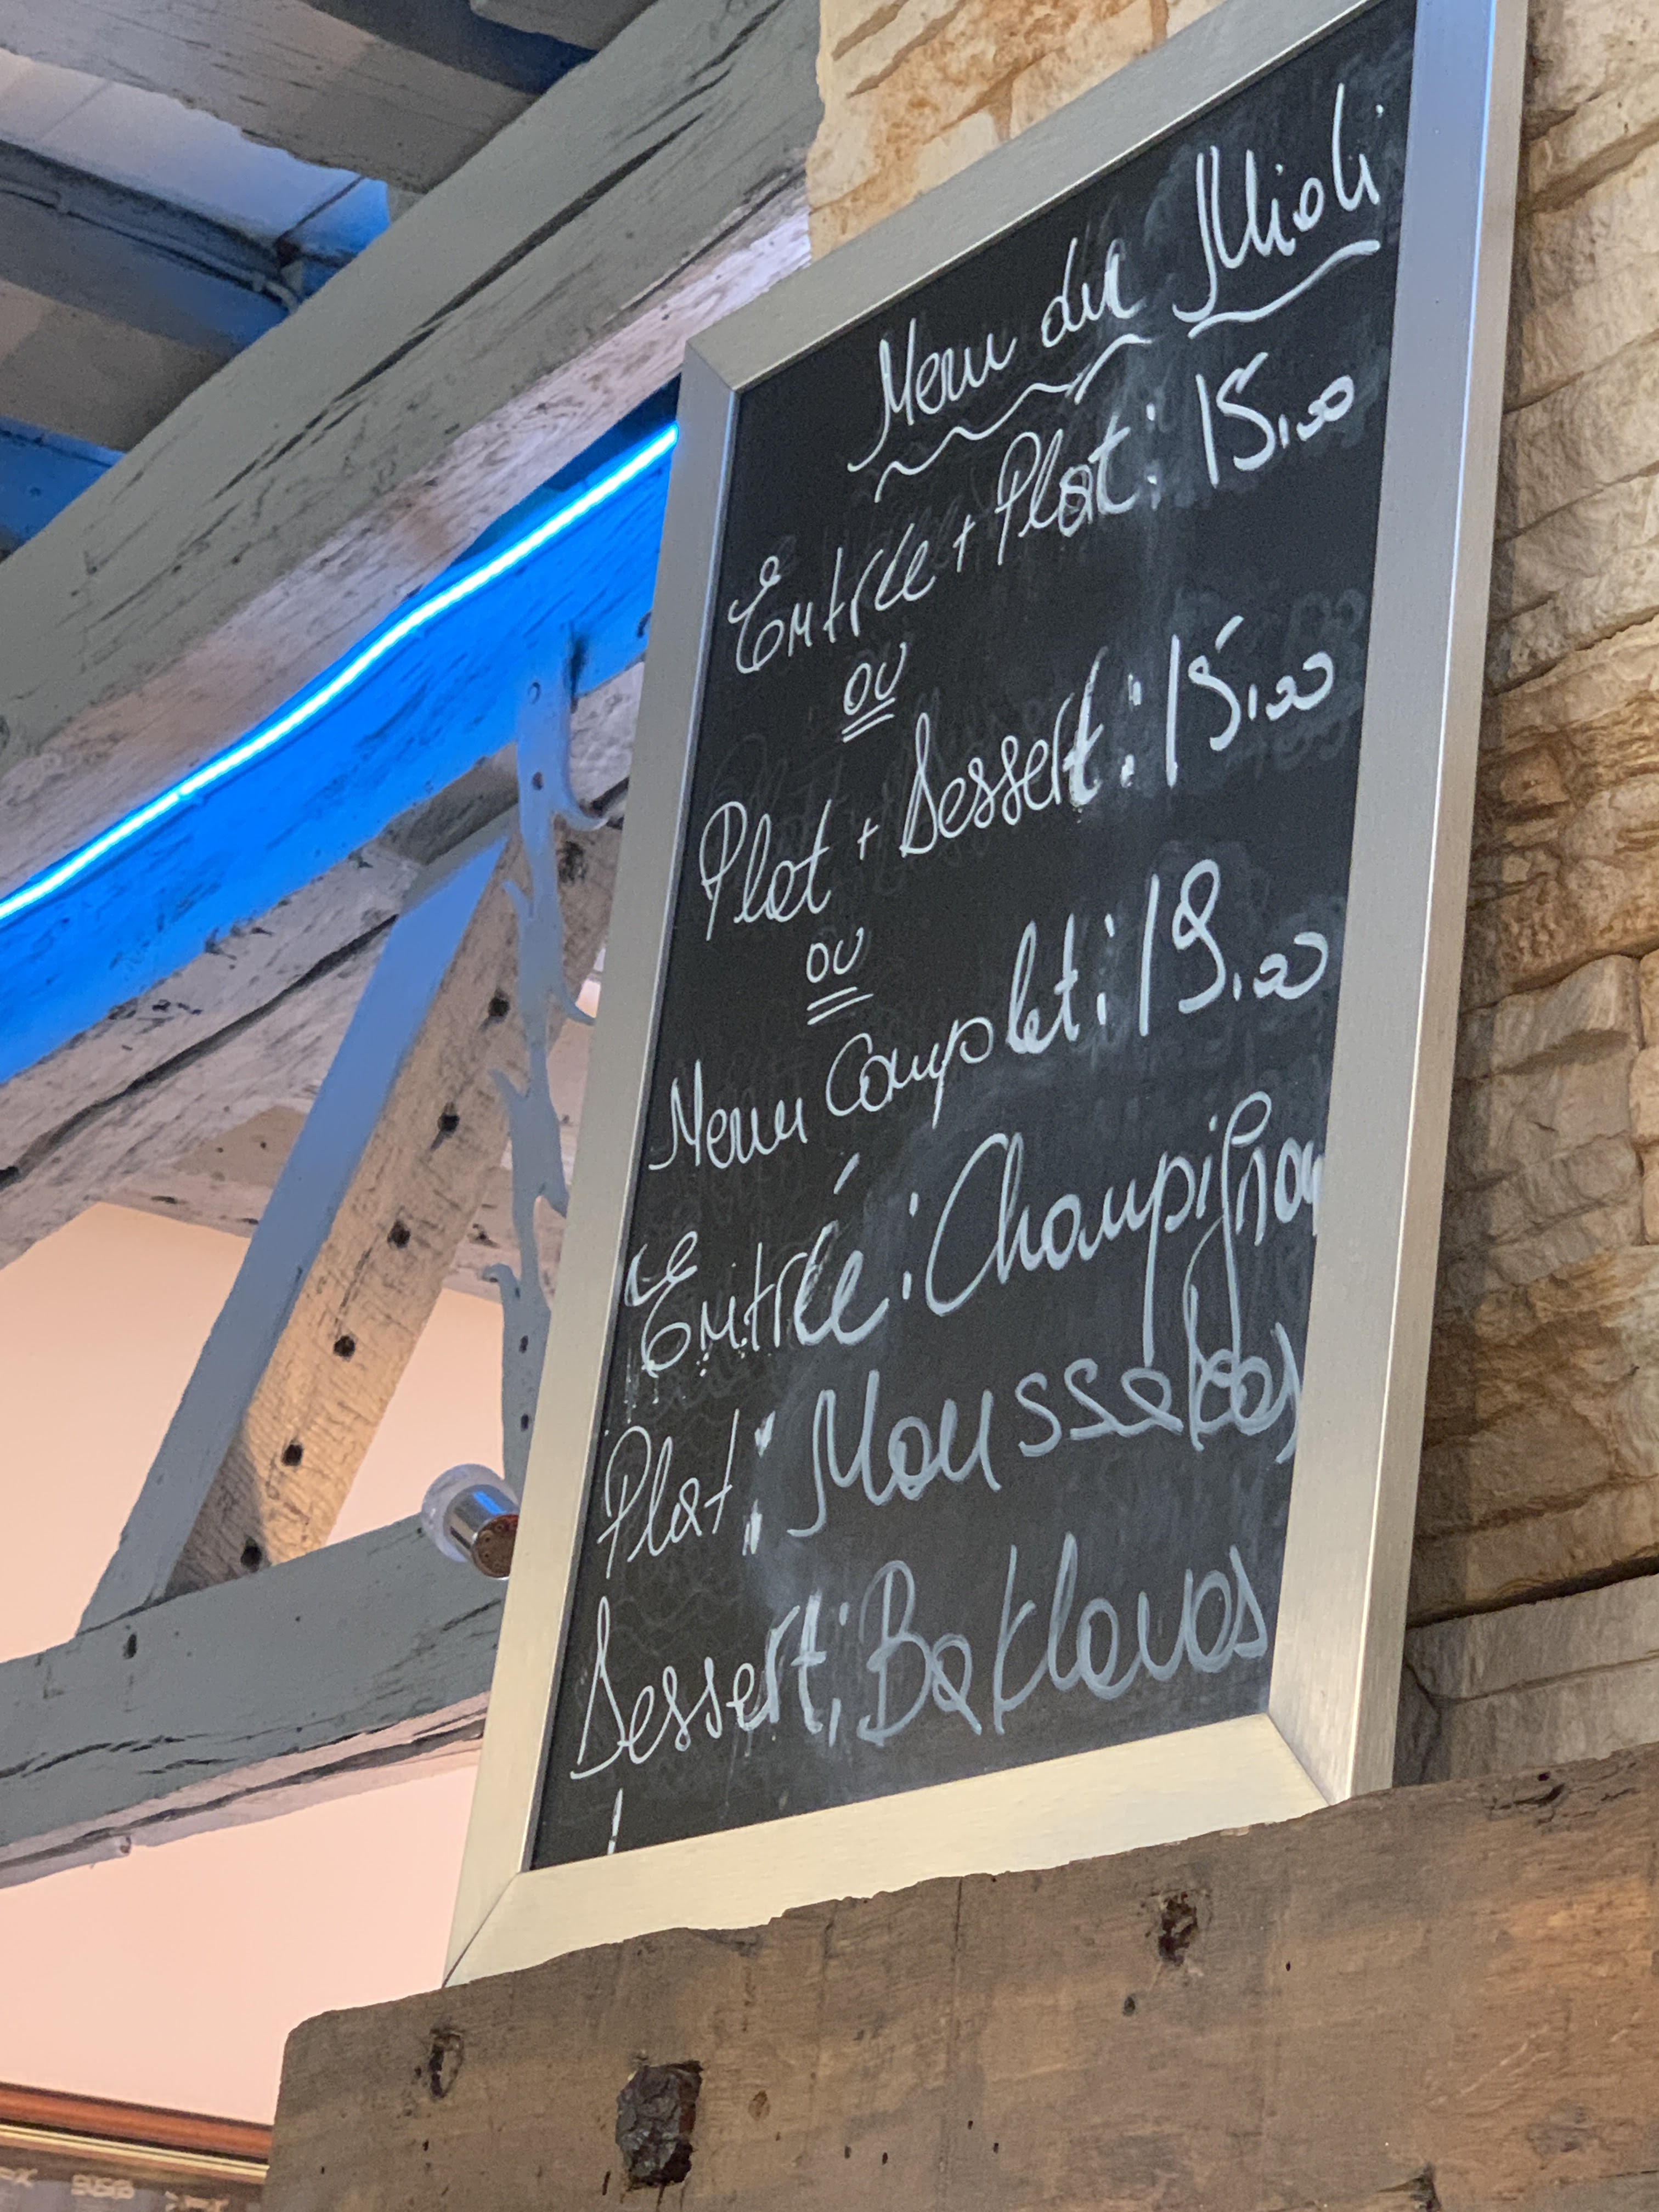 Menu du Midi
Entrée + Plat : 15,00
OU
Plat + Dessert : 15,00
OU
Menu Complet : 19,00
Entrée : Champignon
Plat : Moussakas
Dessert : Baklavas